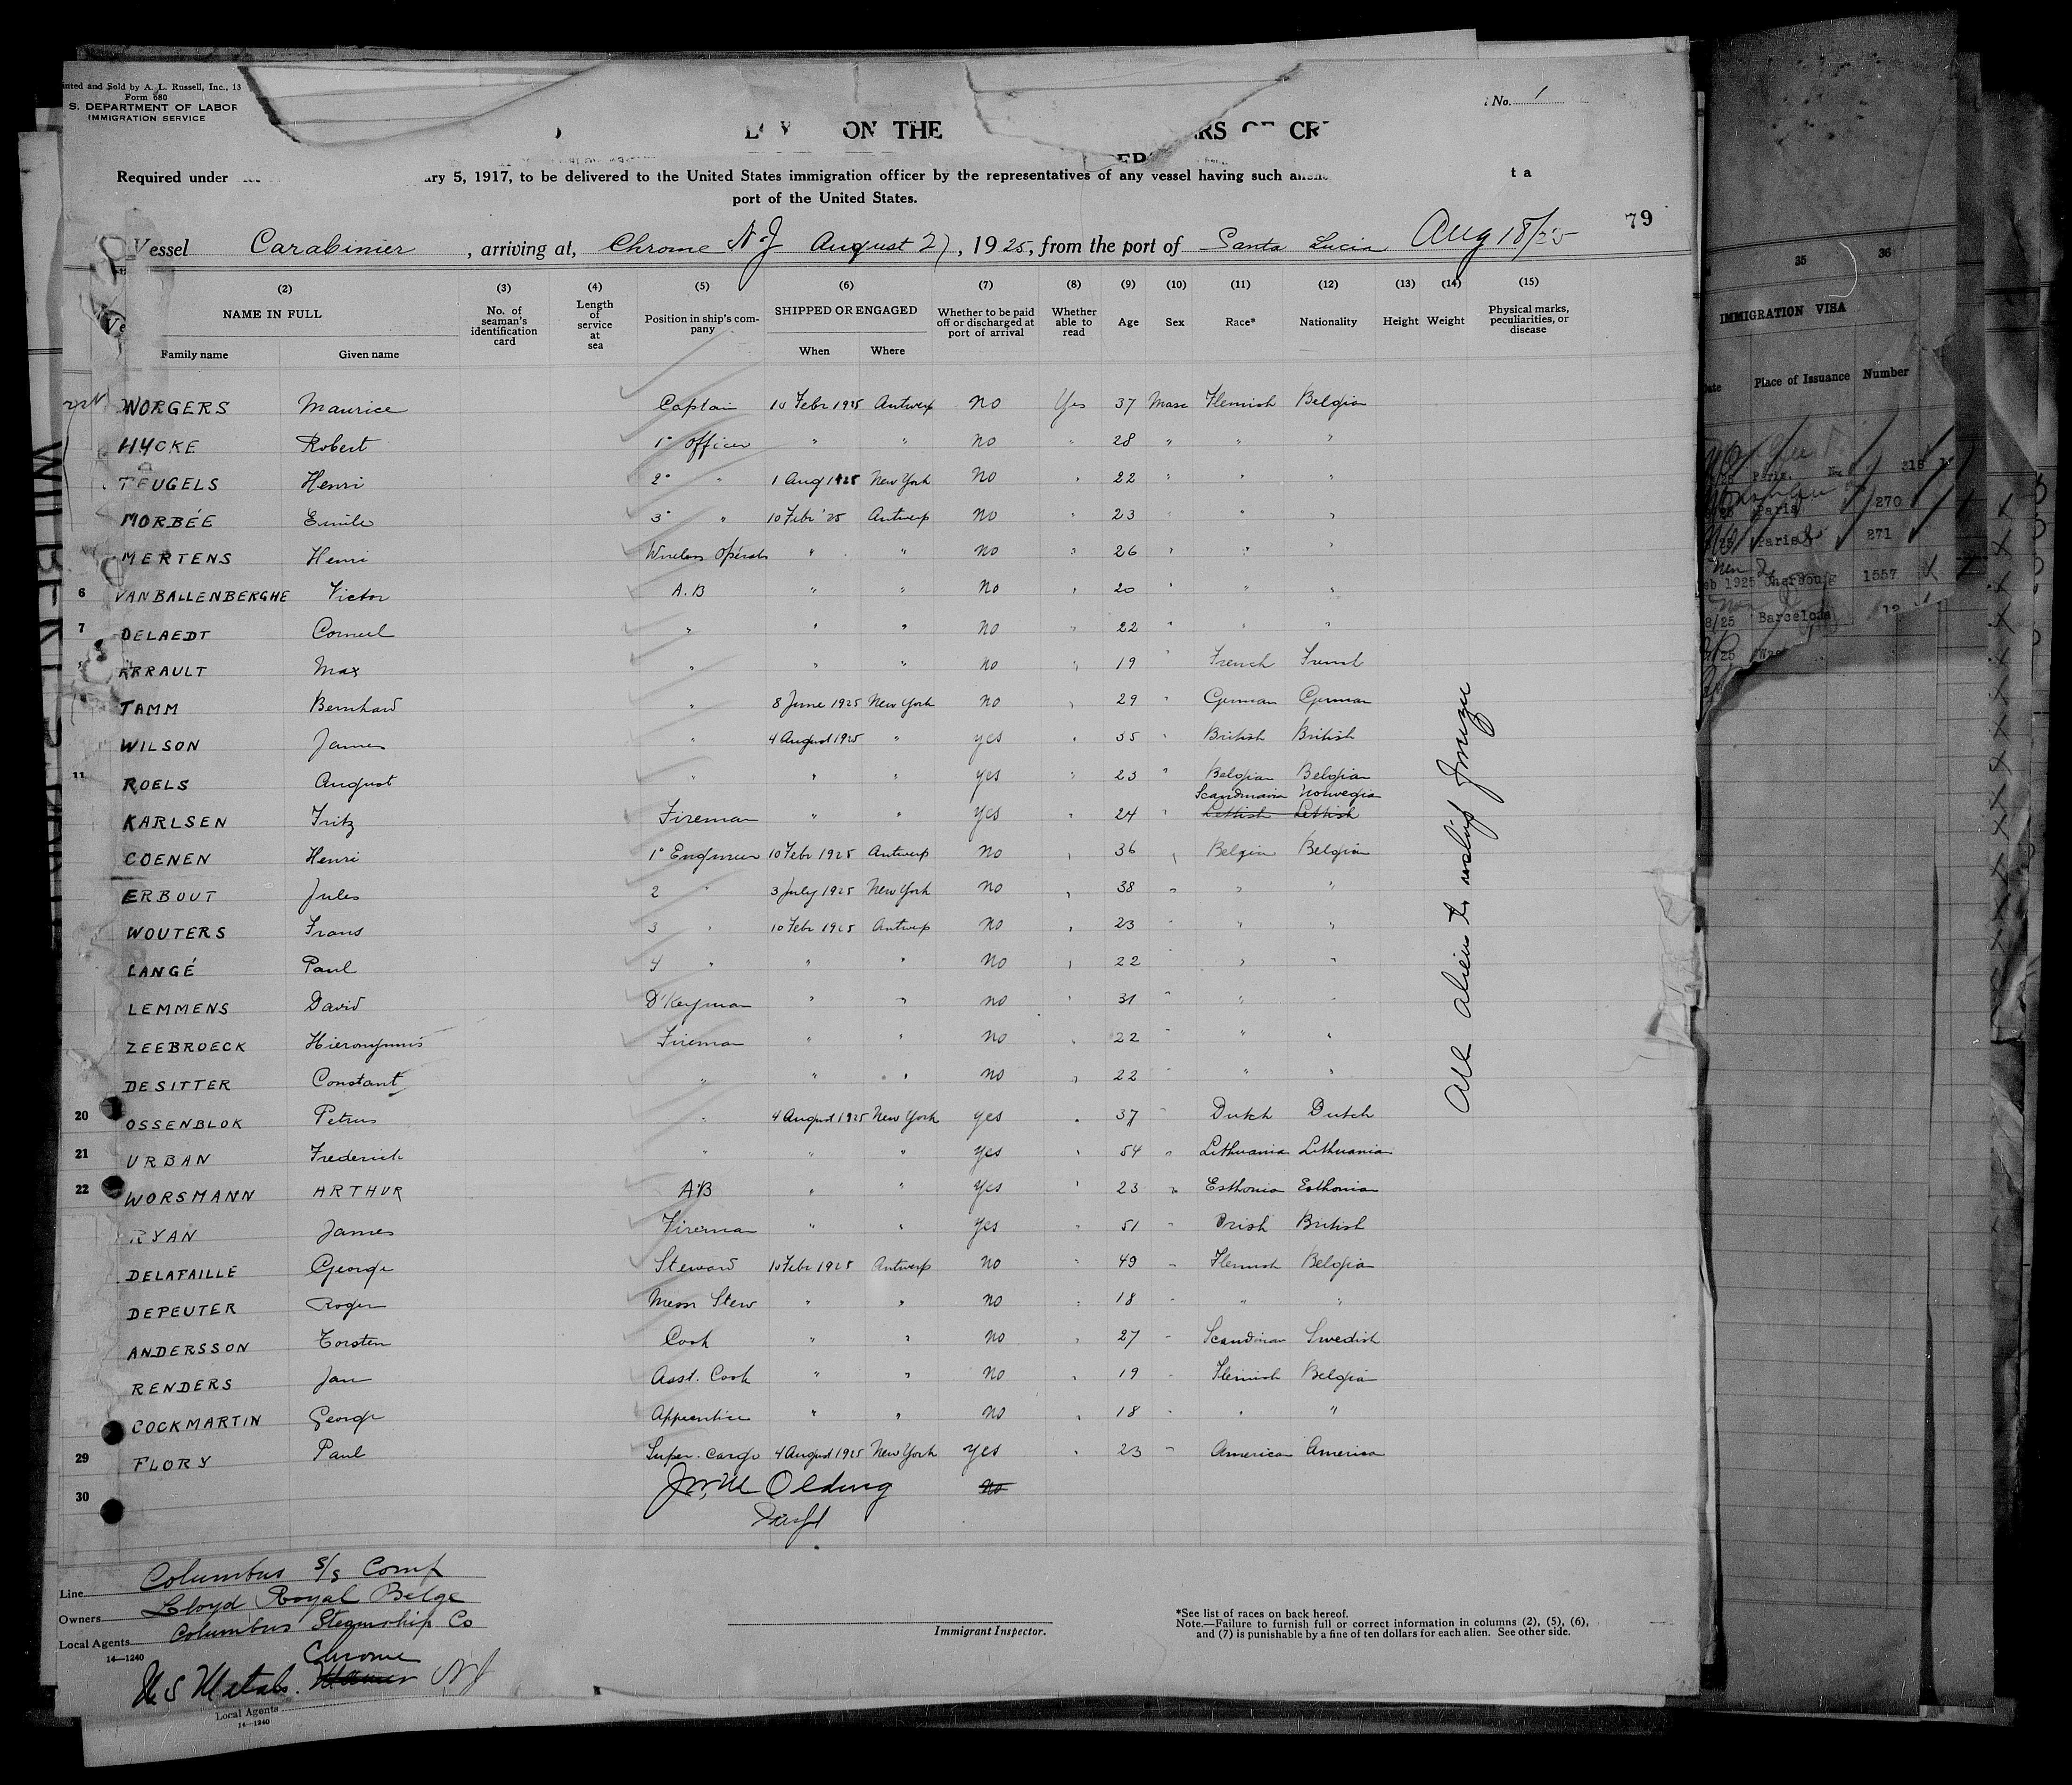 inted and Sold by A. L. Russell, Inc., 13
Form 680
S. DEPARTMENT OF LABOR
IMMIGRATION SERVICE
No. 1
ON THE
Required under ary 5, 1917, to be delivered to the United States immigration officer by the representatives of any vessel having such t a
port of the United States.
79
Vessel Carabinier, arriving at, Chrome N.J August 27, 1925, from the port of Santa Lucia Aug 18/25
(2) (3) (4) (5) (6) (7) (8) (9) (10) (11) (12) (13) (14) (15)
NAME IN FULL No. of seaman's identification card Length of service at sea Position in ship's company SHIPPED OR ENGAGED Whether to be paid off or discharged at port of arrival Whether able to read Age Sex Race* Nationality Height Weight Physical marks, peculiarities, or disease
Family name Given name When Where
WORGERS Maurice Captain 10 Febr 1925 Antwerp no Yes 37 Masc Flemish Belgian
HYCKE Robert 1° Officer " " no " 28 " " "
TEUGELS Henri 2° " 1 Aug 1925 New York No " 22 " " "
MORBÉE Emile 3° " 10 Febr '25 Antwerp No " 23 " " "
MERTENS Henri Wireless Opérats " " no " 26 " " "
6 VANBALLENBERGHE Victor A.B " " No " 20 " " "
7 DELAEDT Corneel " " " no " 22 " " "
ERRAULT Max " " " no " 19 " French French
TAMM Bernhard " 8 June 1925 New York no " 29 " German German
WILSON James " 4 August 1925 " yes " 35 " British British
11 ROELS August " " " yes " 23 " Belgian Belgian
Scandinavia Norwegia
KARLSEN Fritz Fireman " " yes " 24 " Lettish Lettish
COENEN Henri 1° Engineer 10 Febr 1925 Antwerp no " 36 " Belgian Belgian
ERBOUT Jules 2 " 3 July 1925 New York no " 38 " " "
WOUTERS Frans 3 " 10 Febr 1925 Antwerp no " 23 " " "
LANGÉ Paul 4 " " " no " 22 " " "
LEMMENS David D'Keyman " " no " 31 " " "
ZEEBROECK Hieronymus Fireman " " no " 22 " " "
DESITTER Constant " " " no " 22 " " "
20 OSSENBLOK Petrus " 4 August 1925 New York yes " 37 " Dutch Dutch
21 URBAN Frederich " " " yes " 54 " Lithuania Lithuanian
22 WORSMANN ARTHUR A'B " " yes " 23 " Esthonia Esthonian
RYAN James Fireman " " yes " 51 " Irish British
DELAFAILLE George Steward 10 Febr 1925 Antwerp no " 49 " Flemish Belgian
DEPEUTER Roger Mess Stew " " no " 18 " " "
ANDERSSON Torsten Cook " " no " 27 " Scandinav Swedish
RENDERS Jan Asst. Cook " " no " 19 " Flemish Belgian
COCKMARTIN George Apprentice " " no " 18 " " "
29 FLORY Paul Super-cargo 4 August 1925 New York yes " 23 " American America
30 Olding no
All aliens to reship
Line Columbus S/S Comp
Owners Lloyd Royal Belge
Local Agents Columbus Steamship Co
14—1240
Chrome
U S Metals. NJ
Local Agents
14—1240
Immigrant Inspector.
*See list of races on back hereof.
Note.—Failure to furnish full or correct information in columns (2), (5), (6),
and (7) is punishable by a fine of ten dollars for each alien. See other side.
35 36
IMMIGRATION VISA
Place of Issuance Number
Paris
Paris 270
Paris 271
1925 Cherbourg 1557
Barcelona